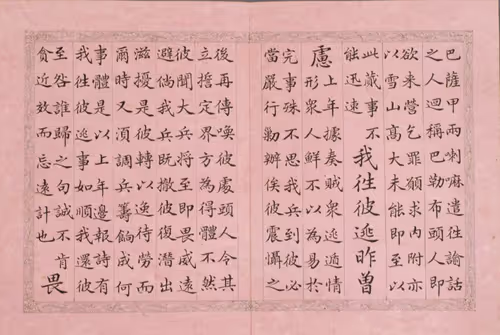 巴薩甲兩喇嘛遣徃諭話
之人迴稱巴勒布頭人即
欲來營乞罪願求內附亦
以雪山高大未能即至以
此蕆事不
能迅速
我徃彼逃昨曾
慮
上年據奏賊衆逃遁情
形衆人鮮不以為易於
完事殊不思我兵到彼必
當嚴行勦辦俟彼震懾之
後再傳喚彼處頭人令其
立擔定界方為得體不然
彼聞大兵將至即畏威遠
避倘我兵既撤彼復潛出
滋擾是彼轉以逸待勞而
爾時又須調兵籌餉成何
事體是以上年邊報詩有
我徃彼逃事如順我還彼
至咎誰歸之句誠不肯
貪近效而忘遠計也
畏